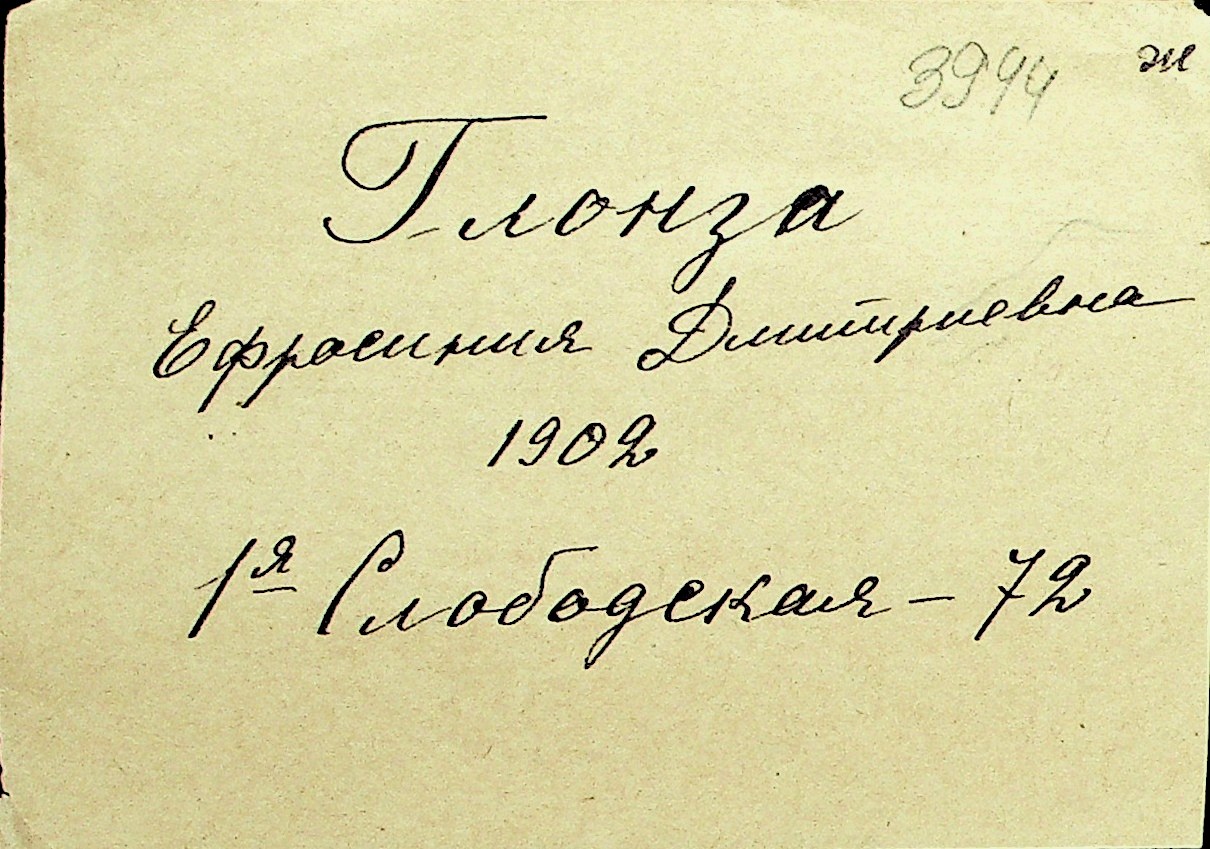 3944 ж
Глонза
Ефросиния Дмитриевна
1902
1я Слободская - 72